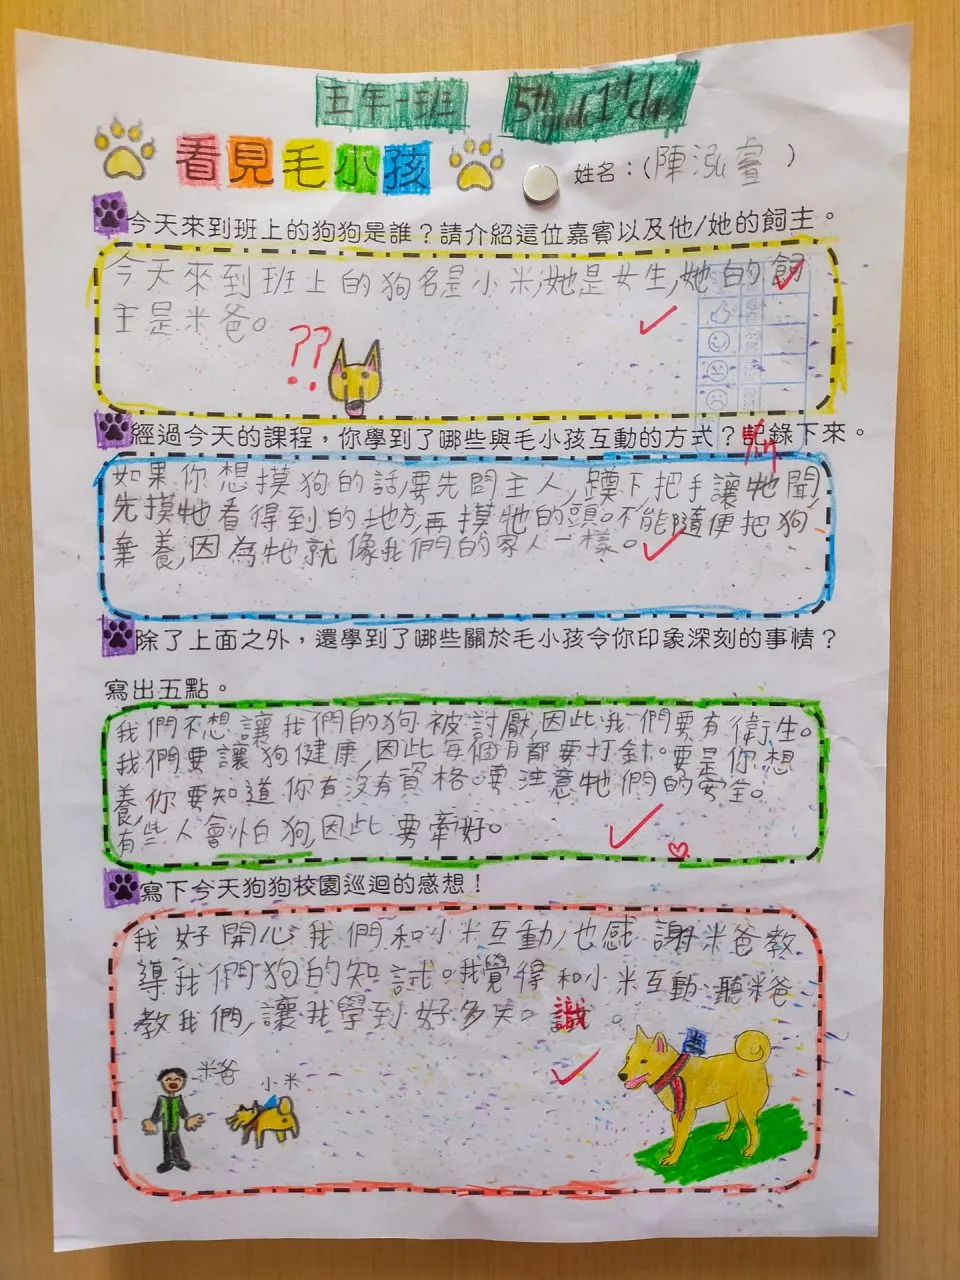 五年一班 5th grade 1st class
看見毛小孩 姓名：(陳泓睿)
今天來到班上的狗狗是誰？請介紹這位嘉賓以及他/她的飼主。
今天來到班上的狗名是小米,她是女生,她的飼
主是米爸。
??
經過今天的課程，你學到了哪些與毛小孩互動的方式？記錄下來。
如果你想摸狗的話,要先問主人,蹲下把手讓牠聞,
先摸牠看得到的地方,再摸牠的頭。不能隨便把狗
棄養,因為牠就像我們的家人一樣。
除了上面之外，還學到了哪些關於毛小孩令你印象深刻的事情？
寫出五點。
我們不想讓我們的狗被討厭,因此我們要有衛生。
我們要讓狗健康,因此每個月都要打針。要是你想
養,你要知道你有沒有資格。要注意牠們的安全。
有些人會怕狗,因此要牽好。
寫下今天狗狗校園巡迴的感想！
我好開心我們和小米互動,也感謝米爸教
導我們狗的知試。我覺得和小米互動、聽米爸
教我們,讓我學到好多知識。
米爸
小米
米